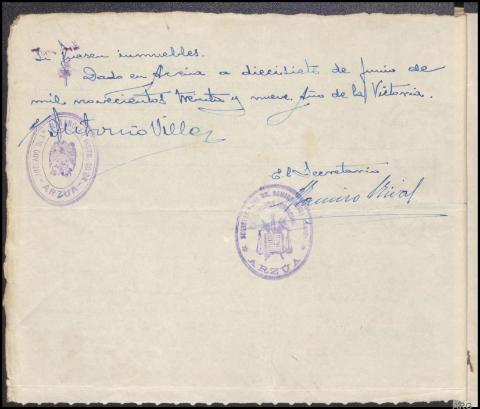 si fuesen inmuebles.
Dado en Arzúa a diecisiete de Junio de
mil novecientos treinta y nueve. Año de la Victoria.
El Secretario
Ramiro
JUZGADO
ARZUA
ARZÚA